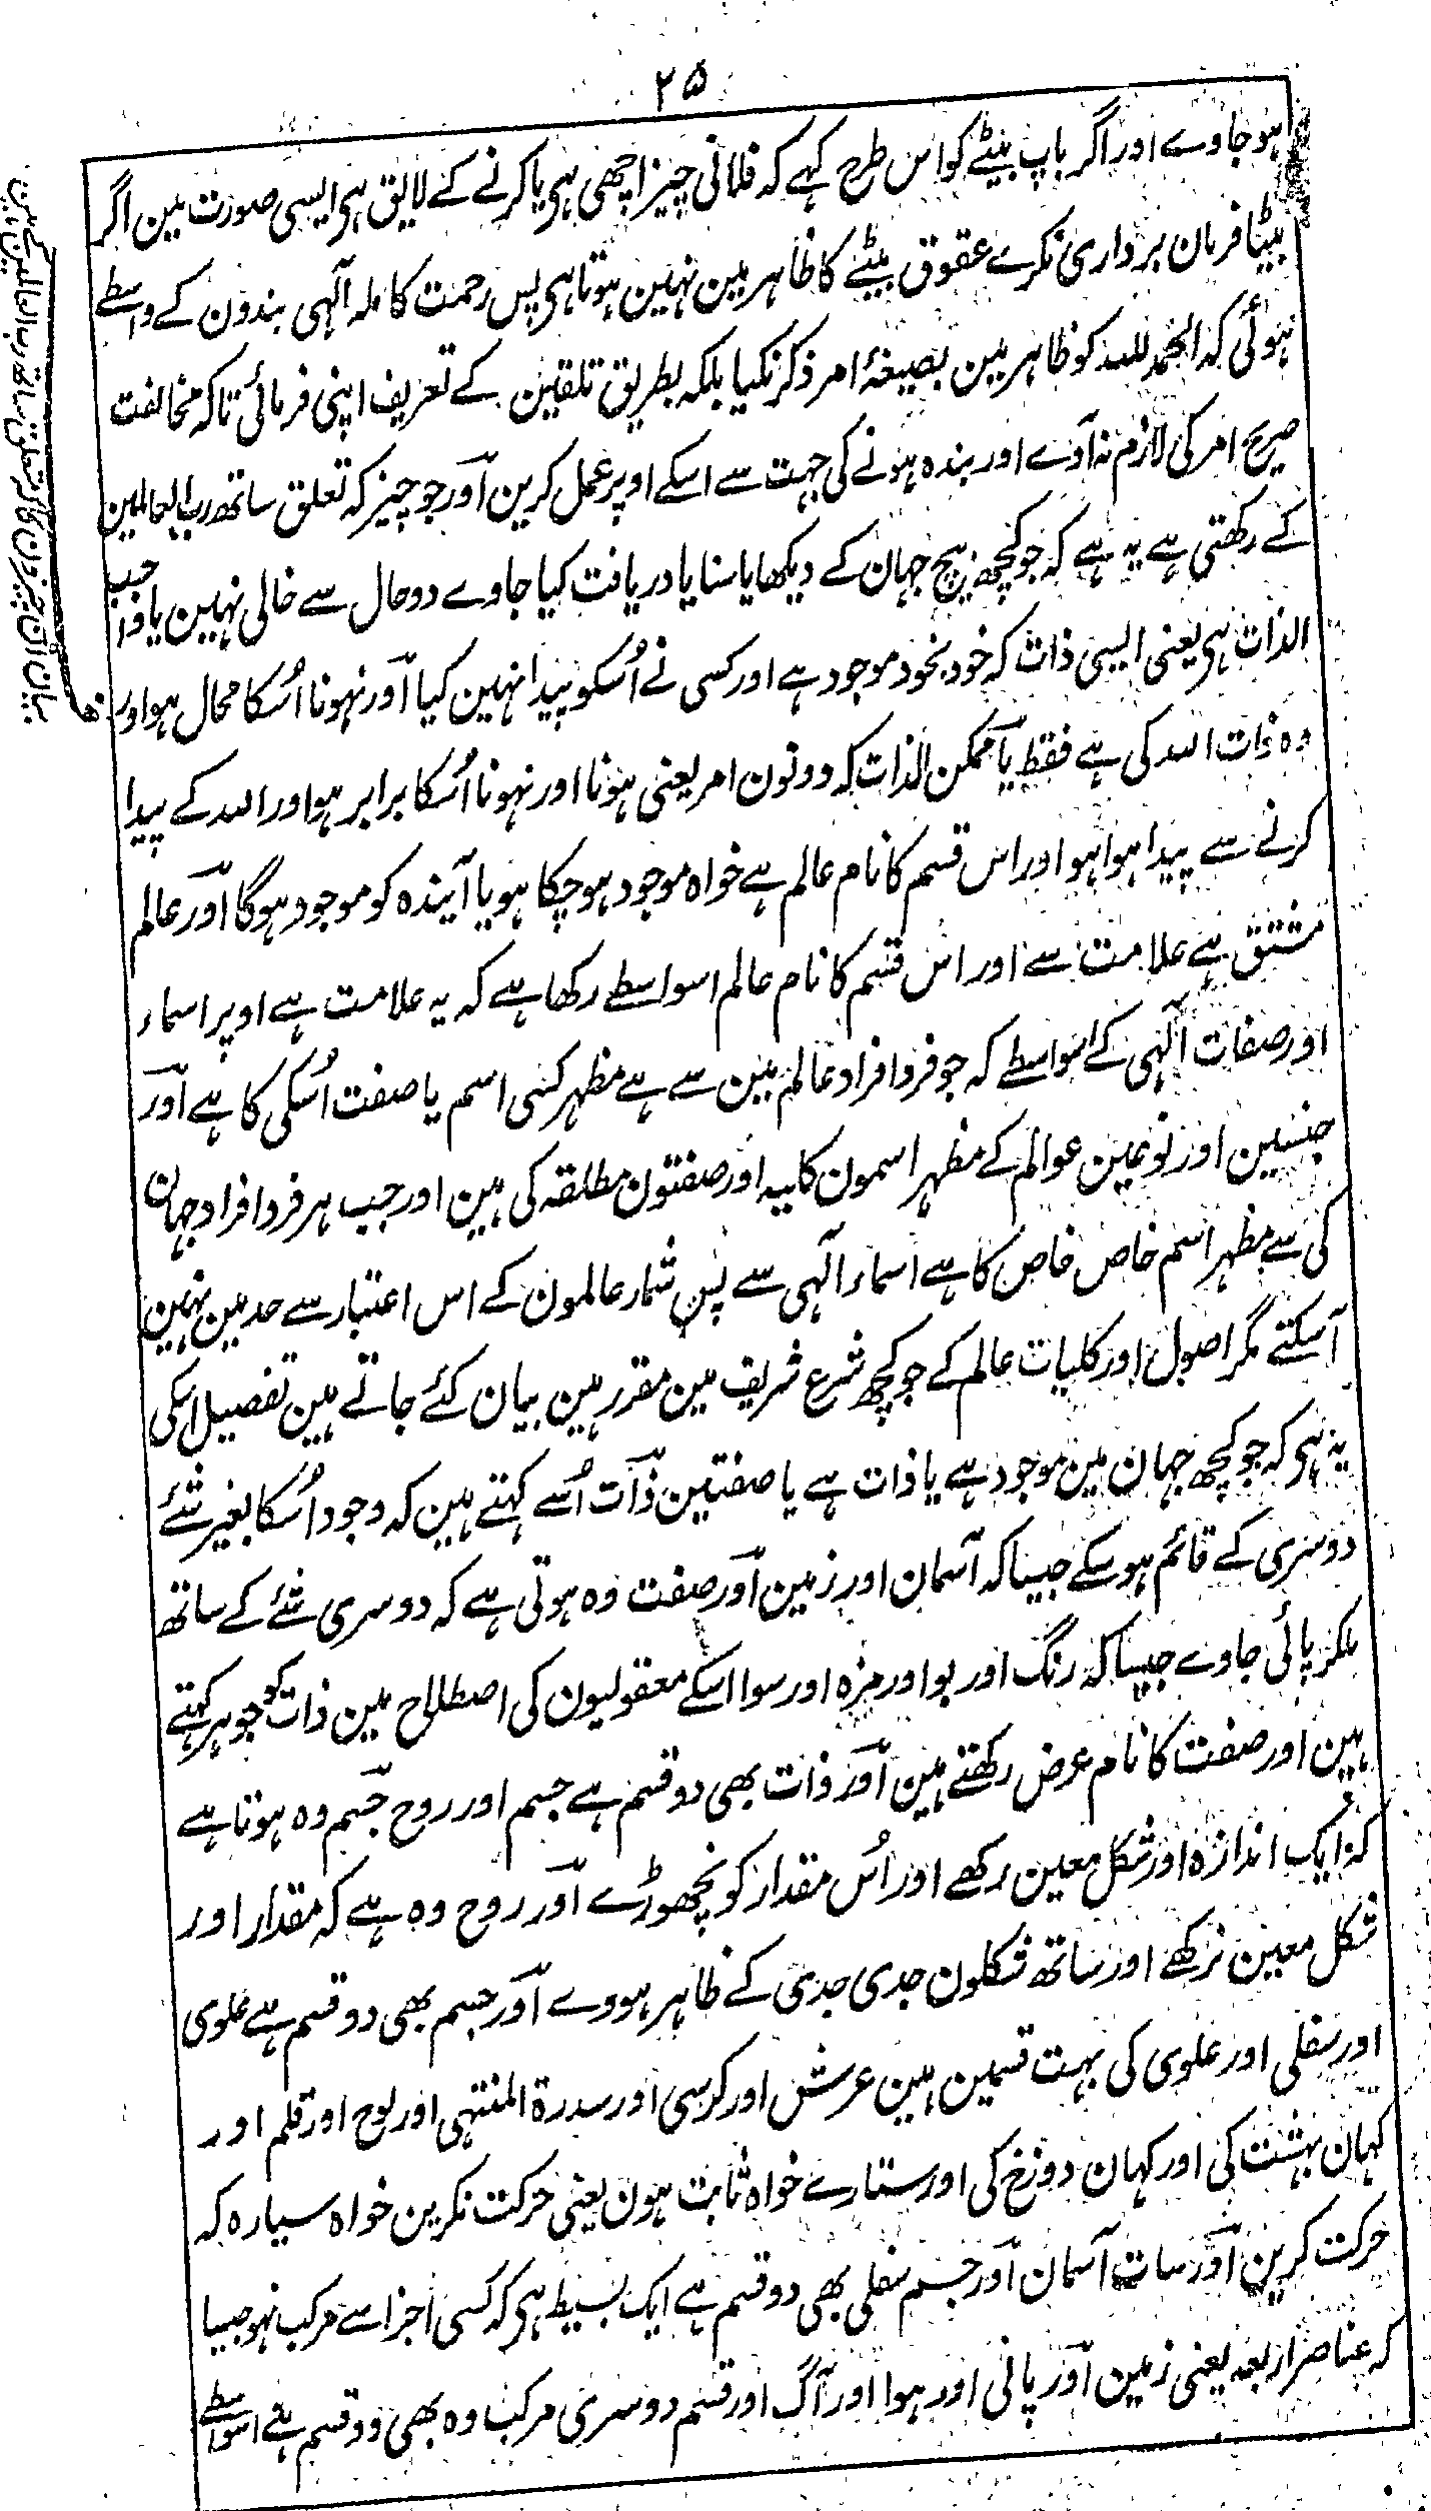 ۲۵
ہو جاوے اور اگر باپ بیٹے کو اس طرح کہے کہ فلانی چیز اچھی ہی یا کرنے کے لایق ہی ایسی صورت مین اگر
بیٹا فرمان برداری نکرے عقوق بیٹے کا ظاہر مین نہین ہوتا ہی پس رحمت کاملہ آلہی بندون کے واسطے
ہوئی کہ الحمد للہ کو ظاہر مین بصیغۂ امر ذکر نکیا بلکہ بطریق تلقین کے تعریف اپنی فرمائی تاکہ مخالفت
صریح امر کی لازم نہ آوے اور بندہ ہونے کی جہت سے اسکے اوپر عمل کرین اور جو چیز کہ تعلق ساتھ رب العالمین
کے رکھتی ہے یہ ہے کہ جو کچھ بیچ جہان کے دیکھا یا سنا یا دریافت کیا جاوے دو حال سے خالی نہین یا واجب
الذات ہی یعنی ایسی ذات کہ خود بخود موجود ہے اور کسی نے اُسکو پیدا نہین کیا اور نہونا اُسکا محال ہو اور
وہ ذات اللہ کی ہے فقط یا ممکن الذات کہ دونون امر یعنی ہونا اور نہونا اُسکا برابر ہو اور اللہ کے پیدا
کرنے سے پیدا ہوا ہو اور اس قسم کا نام عالم ہے خواہ موجود ہو چکا ہو یا آیندہ کو موجود ہوگا اور عالم
مشتق ہے علامت سے اور اس قسم کا نام عالم اسواسطے رکھا ہے کہ یہ علامت ہے اوپر اسماء
اور صفات آلہی کے اسواسطے کہ جو فرد افراد عالم مین سے ہے مظہر کسی اسم یا صفت اُسکی کا ہے اور
جنسین اور نوعین عوالم کے مظہر اسمون کلیہ اور صفتون مطلقہ کی ہین اور جب ہر فرد افراد جہان
کی سے مظہر اسم خاص خاص کا ہے اسماء آلہی سے پس شمار عالمون کے اس اعتبار سے حد مین نہین
آ سکتے مگر اصول اور کلیات عالم کے جو کچھ شرع شریف مین مقرر ہین بیان کئے جاتے ہین تفصیل اسکی
یہ ہی کہ جو کچھ جہان مین موجود ہے یا ذات ہے یا صفتین ذات اُسے کہتے ہین کہ وجود اُسکا بغیر شئے
دوسری کے قائم ہو سکے جیسا کہ آسمان اور زمین اور صفت وہ ہوتی ہے کہ دوسری شئے کے ساتھ
ملکر پائی جاوے جیسا کہ رنگ اور بو اور مزہ اور سوا اسکے معقولیون کی اصطلاح مین ذات کو جوہر کہتے
ہین اور صفت کا نام عرض رکھتے ہین اور ذات بھی دو قسم ہے جسم اور روح جسم وہ ہوتا ہے
کہ ایک اندازہ اور شکل معین رکھے اور اُس مقدار کو نچھوڑے اور روح وہ ہے کہ مقدار اور
شکل معین نرکھے اور ساتھ شکلون جدی جدی کے ظاہر ہووے اور جسم بھی دو قسم ہے علوی
اور سفلی اور علوی کی بہت قسمین ہین عرش اور کرسی اور سدرۃ المنتہی اور لوح اور قلم اور
کہان بہشت کی اور کہان دوزخ کی اور ستارے خواہ ثابت ہون یعنی حرکت نکرین خواہ سیارہ کہ
حرکت کرین اور سات آسمان اور جسم سفلی بھی دو قسم ہے ایک بسیط ہی کہ کسی اجزا سے مرکب نہو جیسا
کہ عناصر اربعہ یعنی زمین اور پانی اور ہوا اور آگ اور قسم دوسری مرکب وہ بھی دو قسم ہے اسواسطے
بیان اُن چیزون کا کہ تعلق ساتھ رب العالمین کے ہین